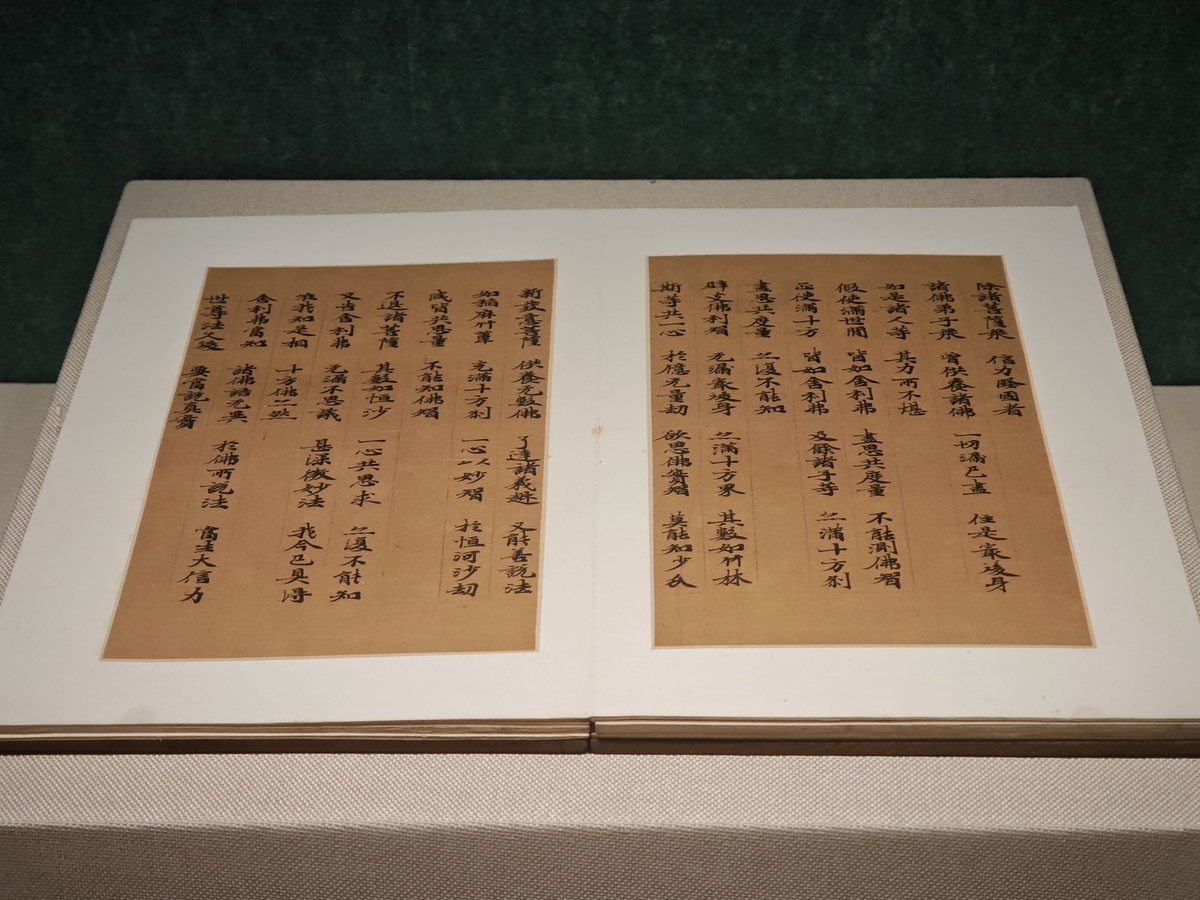 除諸菩薩衆 信力堅固者
諸佛弟子衆 曾供養諸佛 一切漏已盡 住是最後身
如是諸人等 其力所不堪
假使滿世間 皆如舍利弗 盡思共度量 不能測佛智
正使滿十方 皆如舍利弗 及餘諸子等 亦滿十方剎
盡思共度量 亦復不能知
辟支佛利智 无漏最後身 亦滿十方界 其數如竹林
斯等共一心 於億无量劫 欲思佛實智 莫能知少分
新發意菩薩 供養无數佛 了達諸義趣 又能善說法
如稻麻竹葦 充滿十方剎 一心以妙智 於恒河沙劫
咸皆共思量 不能知佛智
不退諸菩薩 其數如恒沙 一心共思求 亦復不能知
又告舍利弗 无漏不思議 甚深微妙法 我今已具得
唯我知是相 十方佛亦然
舍利弗當知 諸佛語无異 於佛所說法 當生大信力
世尊法久後 要當說真實